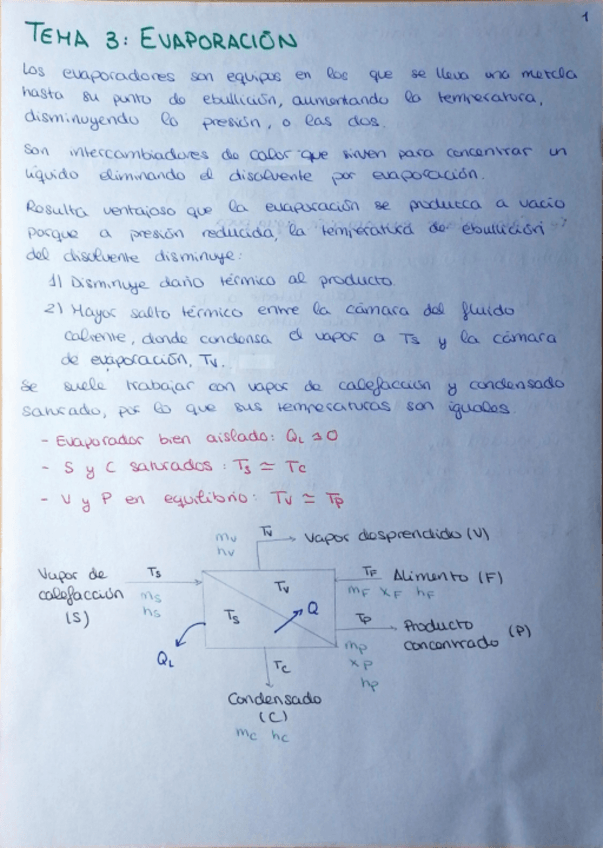 1
TEMA 3: EVAPORACIÓN
Los evaporadores son equipos en los que se lleva una mezcla
hasta su punto de ebullición, aumentando la temperatura,
disminuyendo la presión, o las dos.
Son intercambiadores de calor que sirven para concentrar un
líquido eliminando el disolvente por evaporación.
Resulta ventajoso que la evaporación se produzca a vacío
porque a presión reducida, la temperatura de ebullición
del disolvente disminuye:
1) Disminuye daño térmico al producto.
2) Mayor salto térmico entre la cámara del fluido
caliente, donde condensa el vapor a Ts y la cámara
de evaporación, Tv.
Se suele trabajar con vapor de calefacción y condensado
saturado, por lo que sus temperaturas son iguales.
- Evaporador bien aislado: QL ≃ 0
- S y C saturados: Ts ≃ Tc
- V y P en equilibrio: Tv ≃ Tp
mv hv Tv Vapor desprendido (V)
Vapor de calefacción (S) Ts ms hs
Tv
Ts Q
QL
TF Alimento (F)
mF XF hF
Tp Producto concentrado (P)
mp
Xp
hp
Tc
Condensado
(C)
mc hc